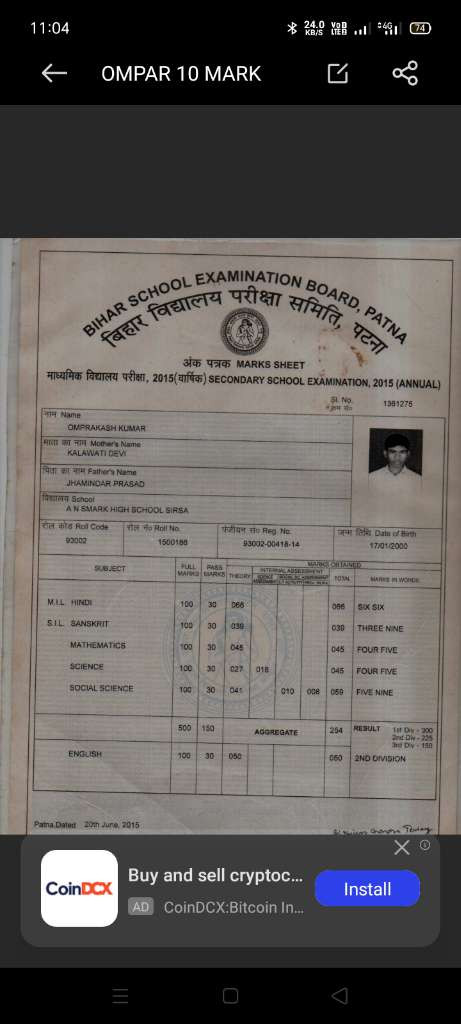 11:04
24.0 KB/S
4G
74
OMPAR 10 MARK
BIHAR SCHOOL EXAMINATION BOARD, PATNA
बिहार विद्यालय परीक्षा समिति, पटना
अंक पत्रक MARKS SHEET
माध्यमिक विद्यालय परीक्षा, 2015(वार्षिक) SECONDARY SCHOOL EXAMINATION, 2015 (ANNUAL)
Sl. No. 1361275
नाम Name
OMPRAKASH KUMAR
माता का नाम Mother's Name
KALAWATI DEVI
पिता का नाम Father's Name
JHAMINDAR PRASAD
विद्यालय School
A N SMARK HIGH SCHOOL SIRSA
रोल कोड Roll Code रोल नं० Roll No. पंजीयन सं० Reg. No. जन्म तिथि Date of Birth
93002 1500186 93002-00418-14 17/01/2000
SUBJECT FULL MARKS PASS MARKS MARKS OBTAINED
THEORY INTERNAL ASSESSMENT TOTAL MARKS IN WORDS
M.I.L. HINDI 100 30 066 066 SIX SIX
S.I.L. SANSKRIT 100 30 039 039 THREE NINE
MATHEMATICS 100 30 045 045 FOUR FIVE
SCIENCE 100 30 027 018 045 FOUR FIVE
SOCIAL SCIENCE 100 30 041 010 008 059 FIVE NINE
500 150 AGGREGATE 254 RESULT 1st Div - 300
2nd Div - 225
3rd Div - 150
ENGLISH 100 30 050 050 2ND DIVISION
Patna,Dated 20th June, 2015
CoinDCX
Buy and sell cryptoc...
AD CoinDCX:Bitcoin In...
Install